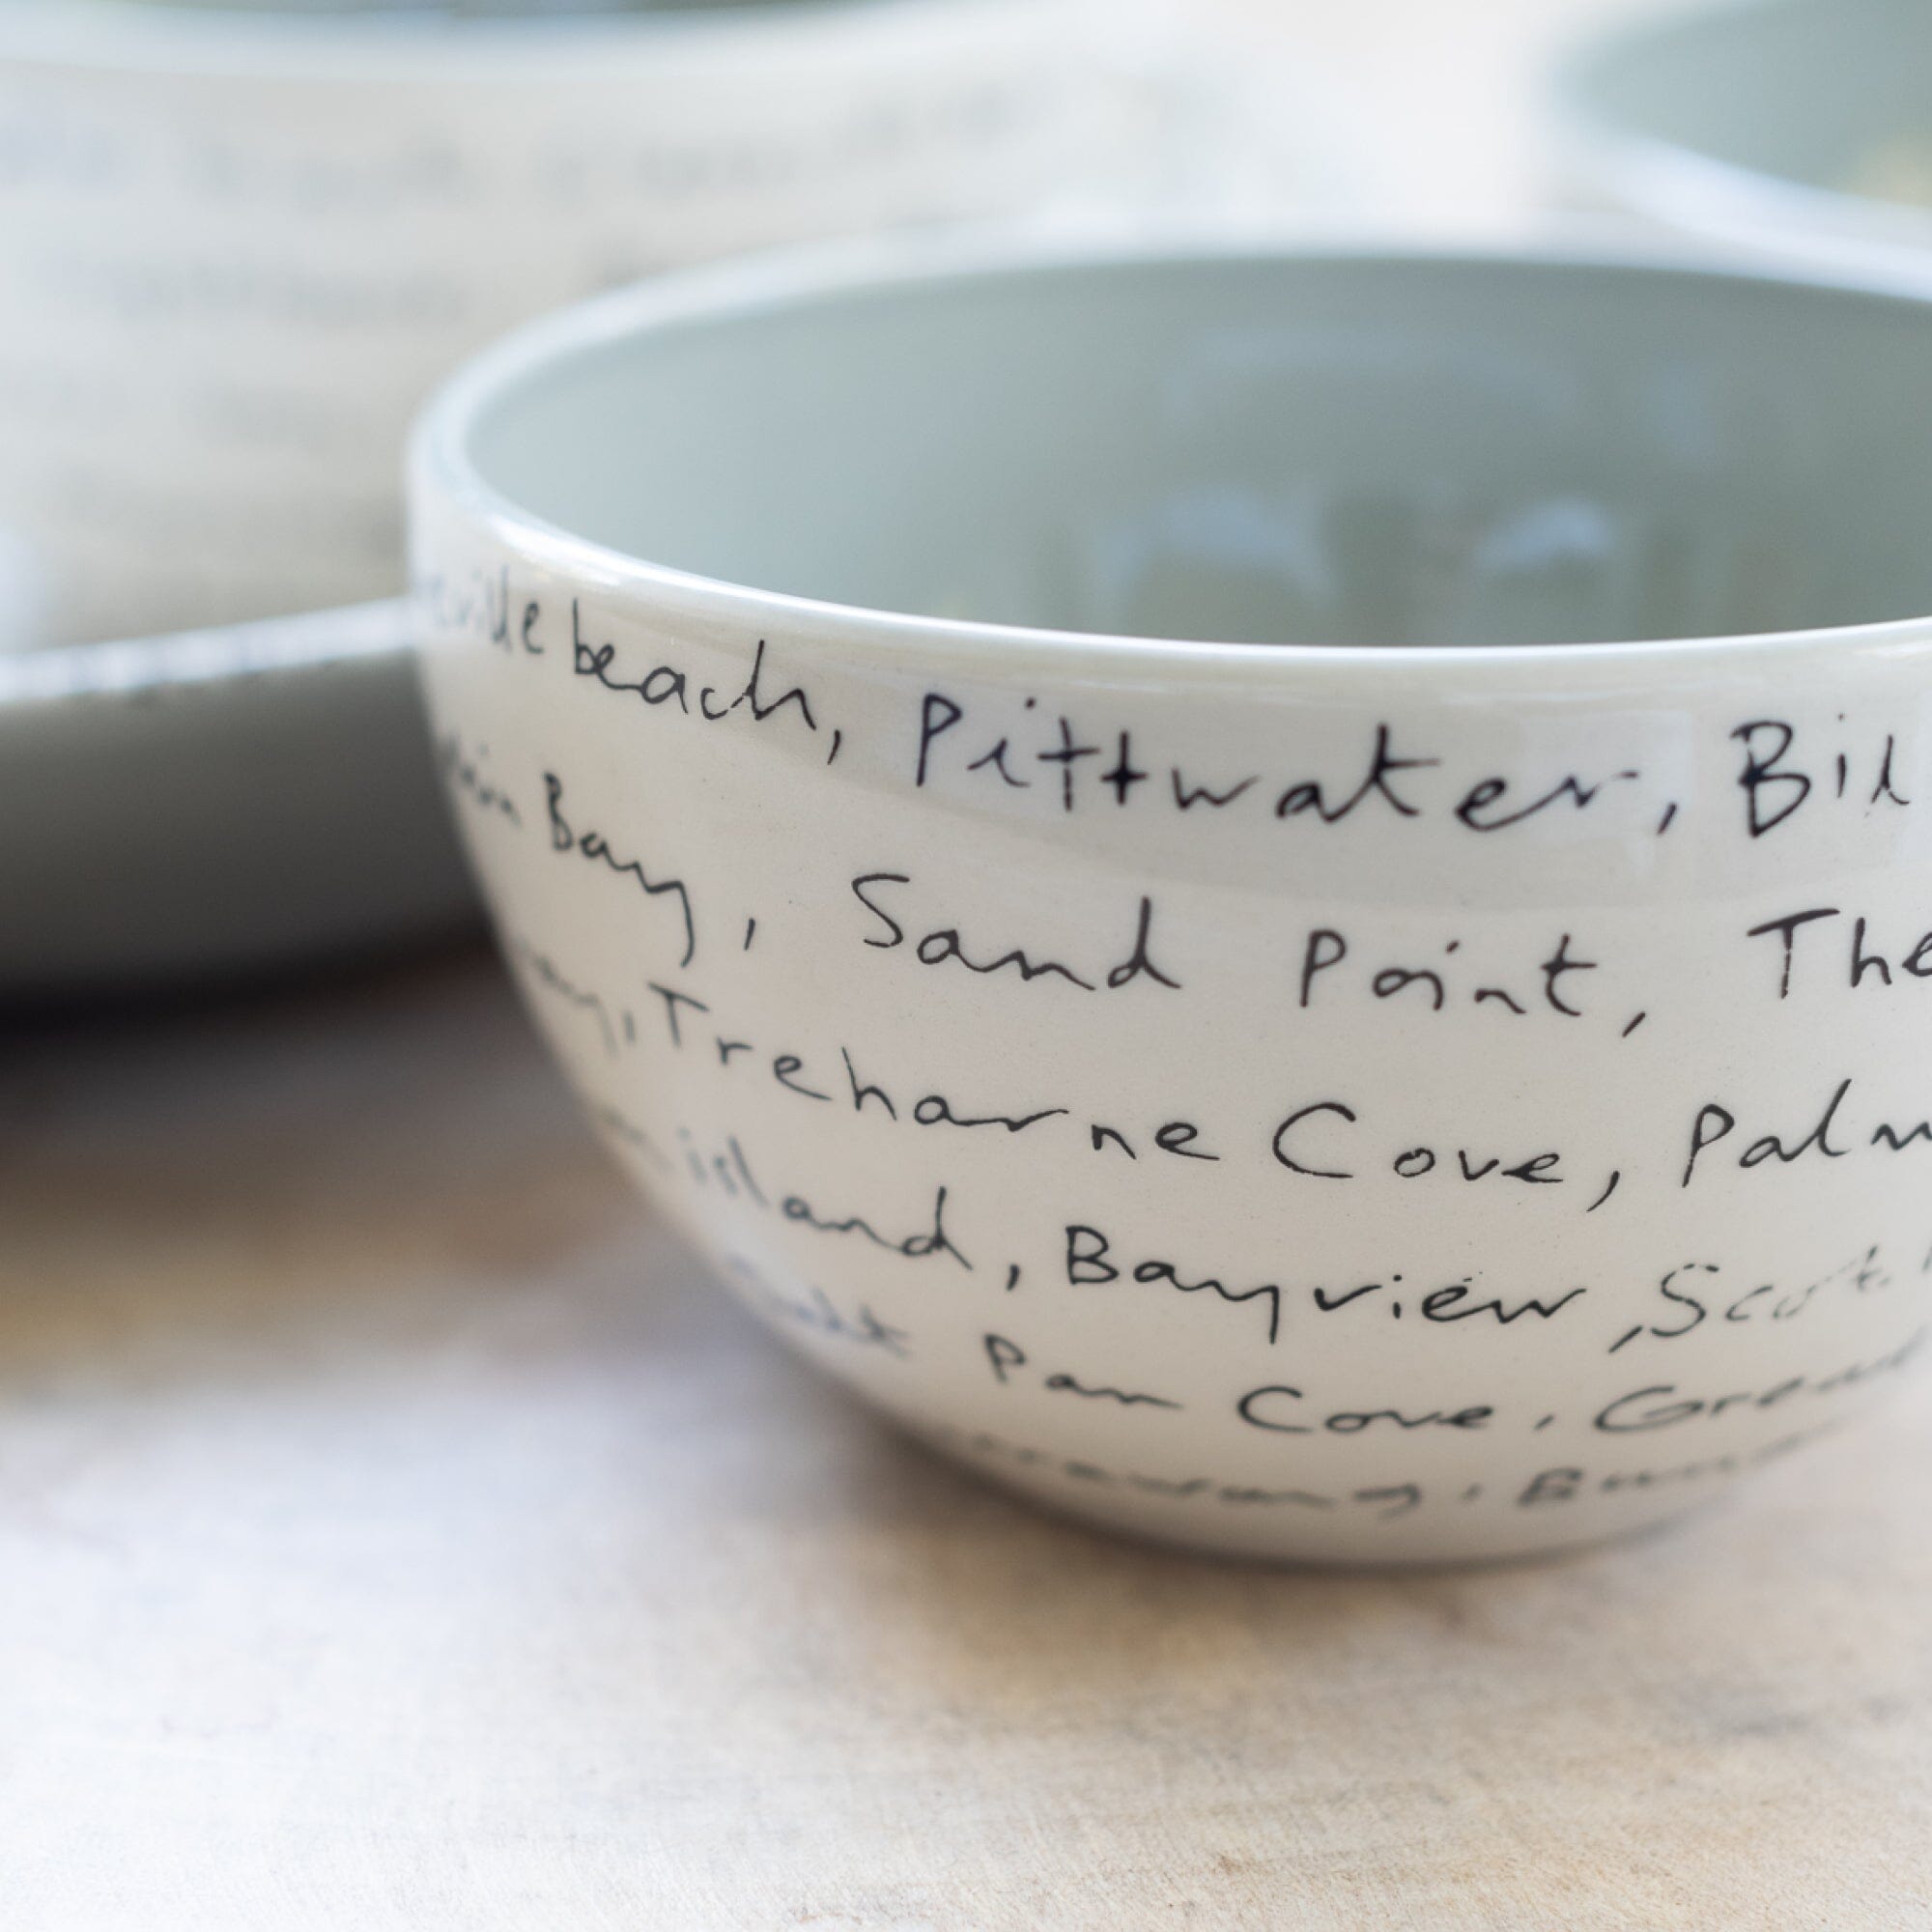 beach, Pittwater, Bil
Bay, Sand Point, The
Treharne Cove, Palm
island, Bayview, Scot
Pan Cove, Grea